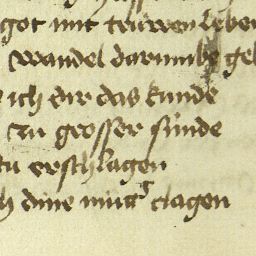 got mit trüwen leben
wandel darumbe gel
ich dir das kunde
zu grosser sünde
tu erschlagen
h dine mütt clagen